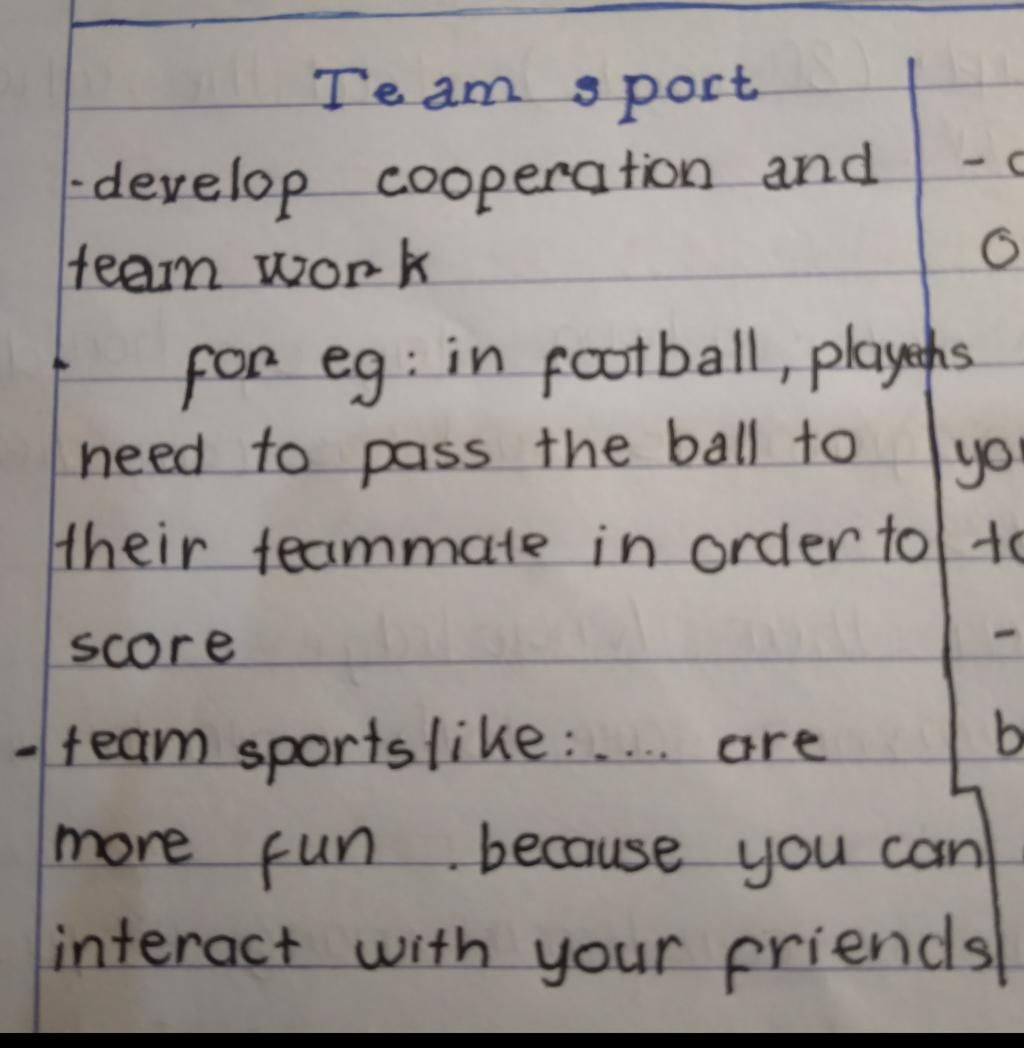 Team sport
-develop cooperation and
team work
- for eg: in football, players
need to pass the ball to
their teammate in order to
score
- team sports like:.... are
more fun . because you can
interact with your friends